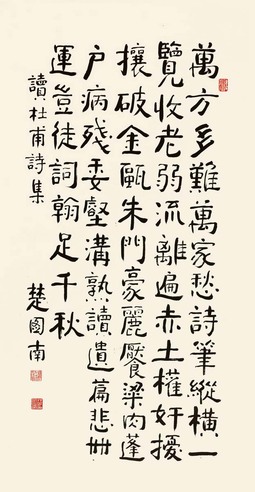 萬方多難萬家愁詩筆縱橫一
覽收老弱流離遍赤土權奸擾
攘破金甌朱門豪麗饜粱肉蓬
户病殘委壑溝熟讀遺篇悲世
運豈徒詞翰足千秋
讀杜甫詩集
楚圖南